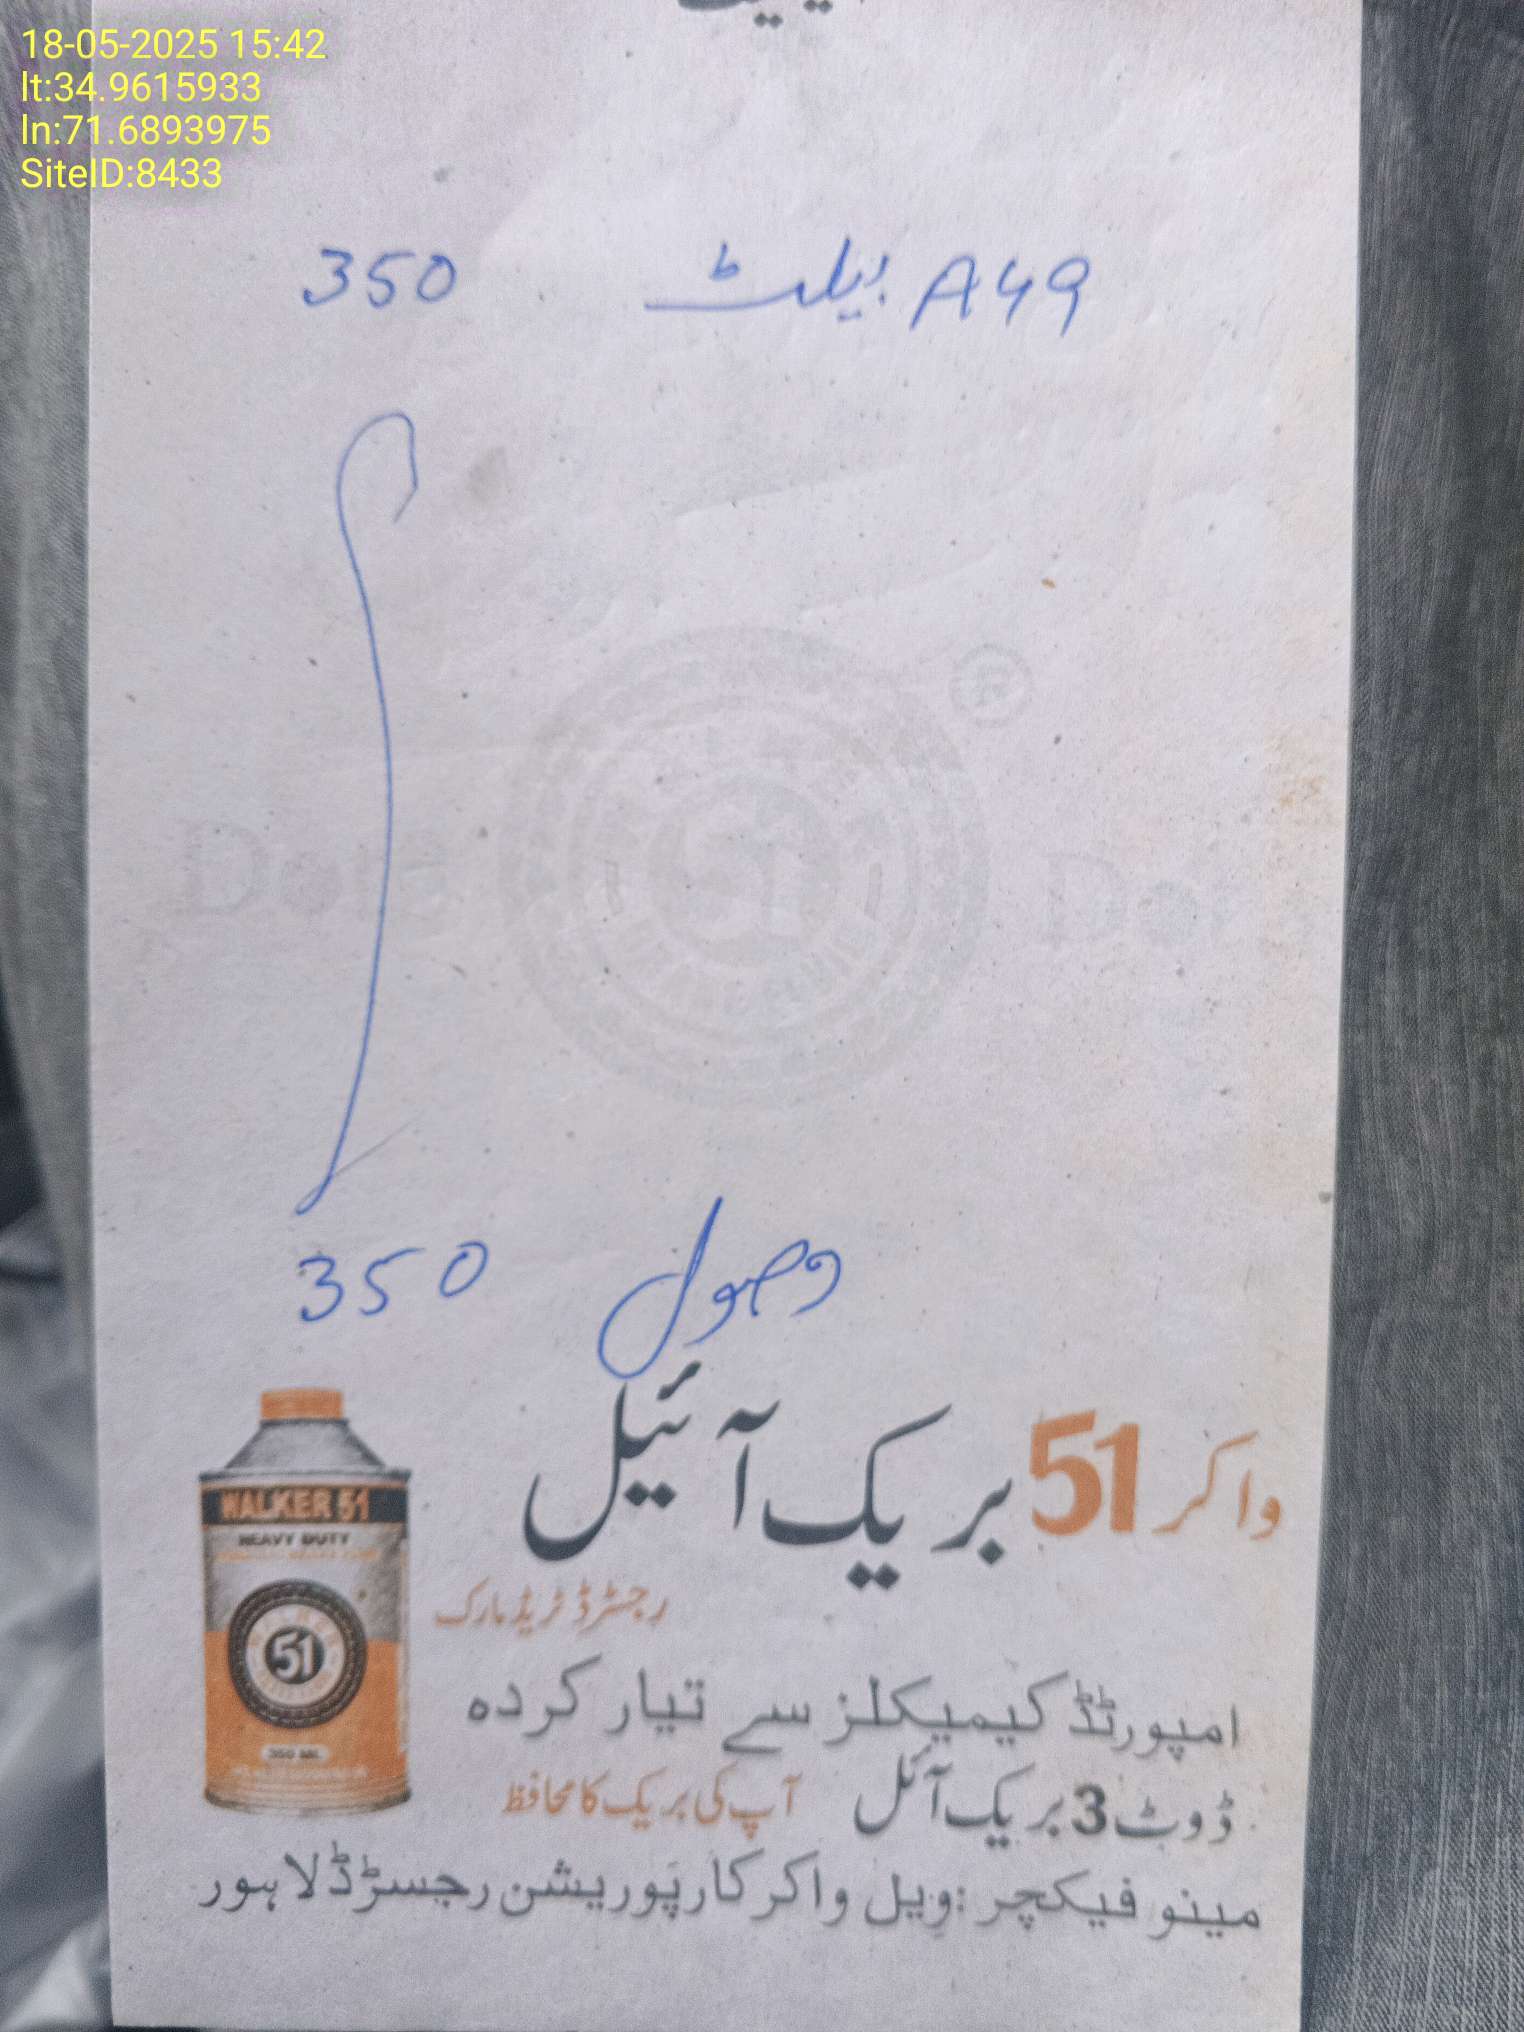 18-05-2025 15:42
lt:34.9615933
ln:71.6893975
SiteID:8433
A49 بیلٹ 350
®
51
وصول 350
واکر 51 بریک آئیل
WALKER 51
HEAVY DUTY
51
350 ML
رجسٹرڈ ٹریڈ مارک
امپورٹڈ کیمیکلز سے تیار کردہ
ڈوٹ 3 بریک آئل آپ کی بریک کا محافظ
مینو فیکچر : ویل واکر کارپوریشن رجسڑڈ لاہور